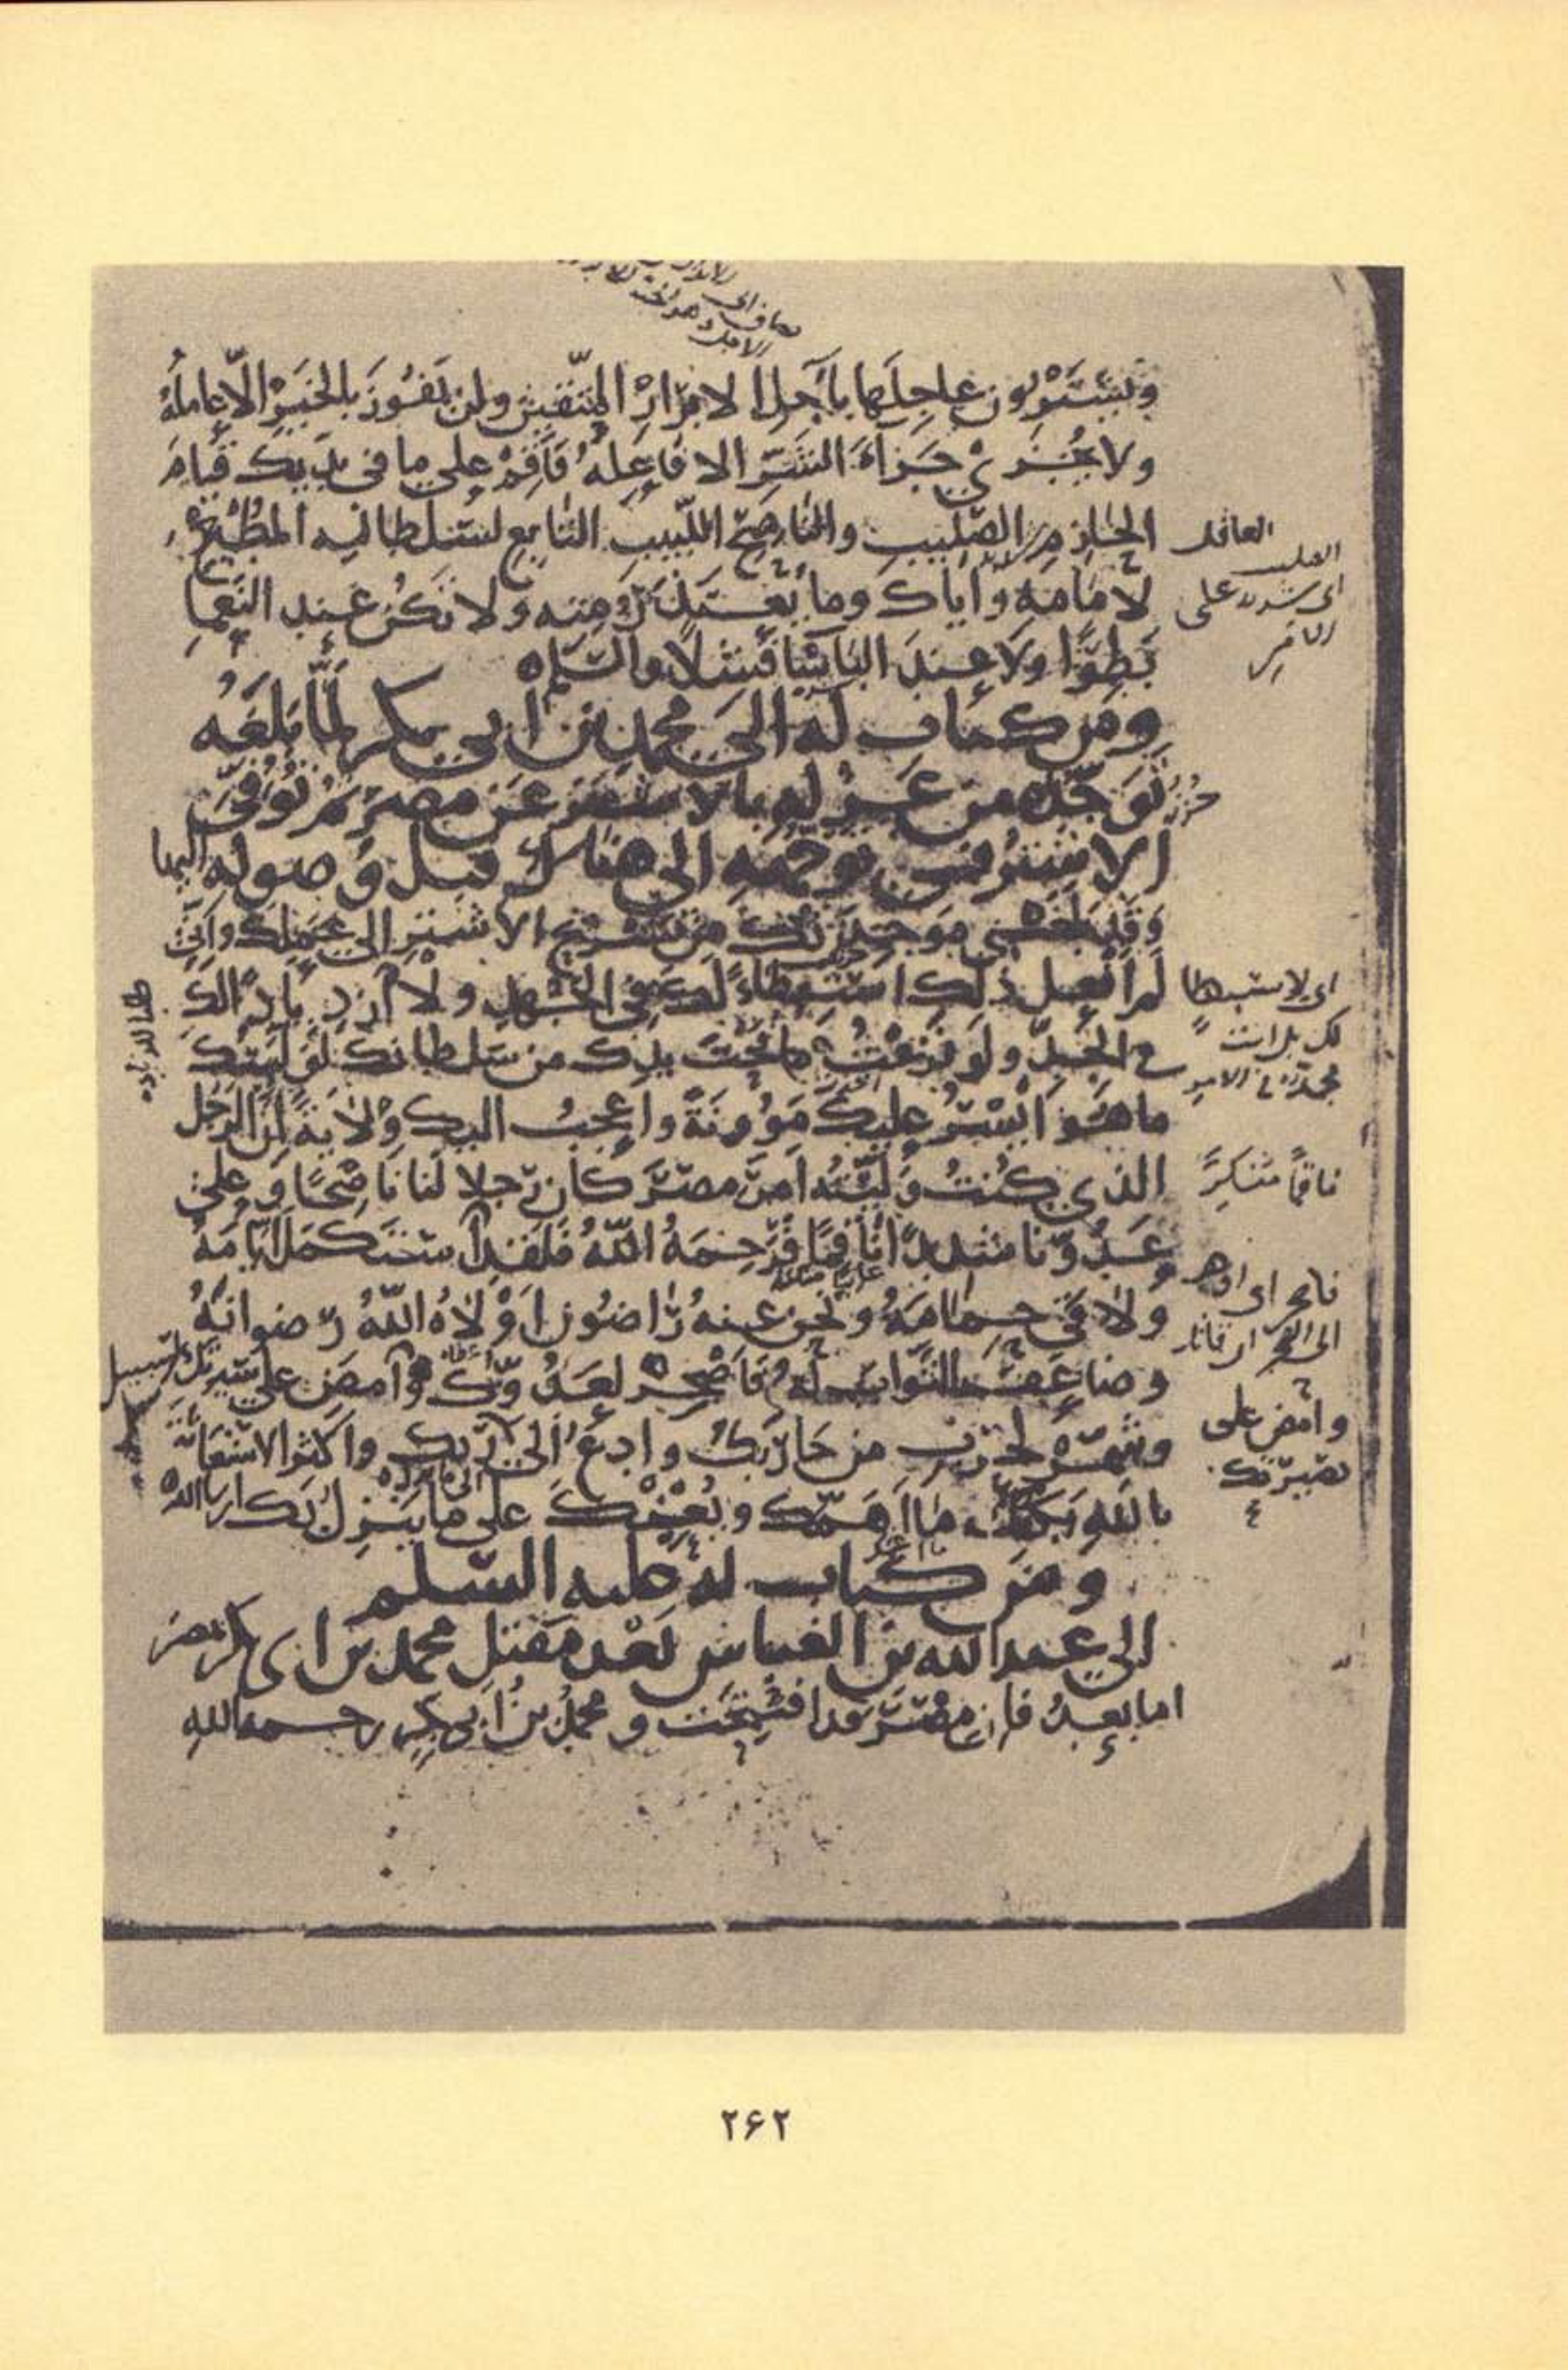 ويشترون عاجلها بآجل الابرار المتقين ولن يفوز بالخير الّا عامله
ولا يجزى جزاء الشر الا فاعله فأقم على ما في يديك قيام
الحازم الصليب والناصح اللبيب التابع لسلطانه المطيع
لامامه واياك وما يعتذر منه ولا تكن عند النعما
بطرًا ولا عند البأسا فشلًا والسلم
ومن كتاب له الى محمد بن ابي بكر لمّا بلغه
توجّده من عزله بالاشتر عن مصر ثم توفي
الاشتر في توجّهه الى هناك قبل وصوله اليها
وقد بلغني موجدتك من تسريح الاشتر الى عملك واني
لم افعل ذلك استبطاءً لك في الجهد ولا ازديادًا لك
في الجدّ ولو نزعت ما تحت يدك من سلطانك لوليتك
ما هو ايسر عليك مؤونةً واعجب اليك ولايةً انّ الرجل
الذي كنت وليته امر مصر كان رجلا لنا ناصحًا وعلى
عدوّنا شديدًا ناقمًا فرحمه الله فلقد استكمل ايامه
ولاقى حمامه ونحن عنه راضون اولاه الله رضوانه
وضاعف الثواب له فأصحر لعدوّك وامض على بصيرتك
وشمّر لحرب من حاربك وادع الى سبيل ربك واكثر الاستعانة
بالله يكفك ما اهمّك ويعنك على ما ينزل بك ان شاء الله
ومن كتاب له عليه السلم
الى عبد الله بن العباس بعد مقتل محمد بن ابى بكر بمصر
اما بعد فان مصر قد افتتحت ومحمد بن ابى بكر رحمه الله
العاقل
الصليب
اى شديد على
الامر
اى لا استبطا
لك بل انت
مجدّ فى الامر
ناقمًا منكرًا
وامض على
بصيرتك
۲۶۲